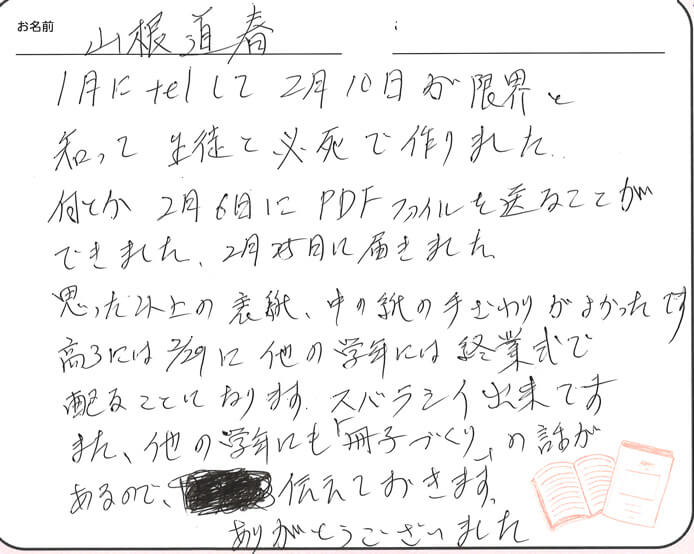 お名前
山根道春
1月にtelして 2月10日が限界と
知って 生徒と必死で作りました.
何とか 2月6日に PDFファイルを送ることが
できました、2月25日に届きました.
思った以上の表紙、中の紙の手ざわりがよかったです
高3には 2/29に 他の学年には終業式で
配ることになります. スバラシイ出来です
また、他の学年にも「冊子づくり」の話が
あるので、伝えておきます.
ありがとうございました